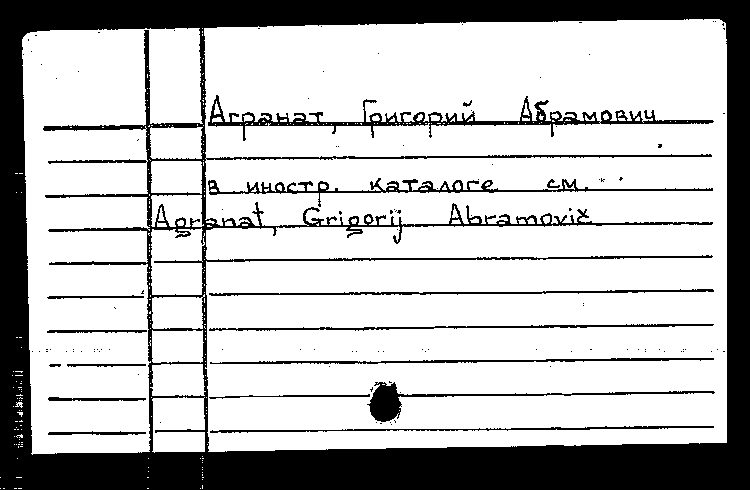 Агранат, Григорий Абрамович
в иностр. каталоге см.
Agranat, Grigorij Abramovič